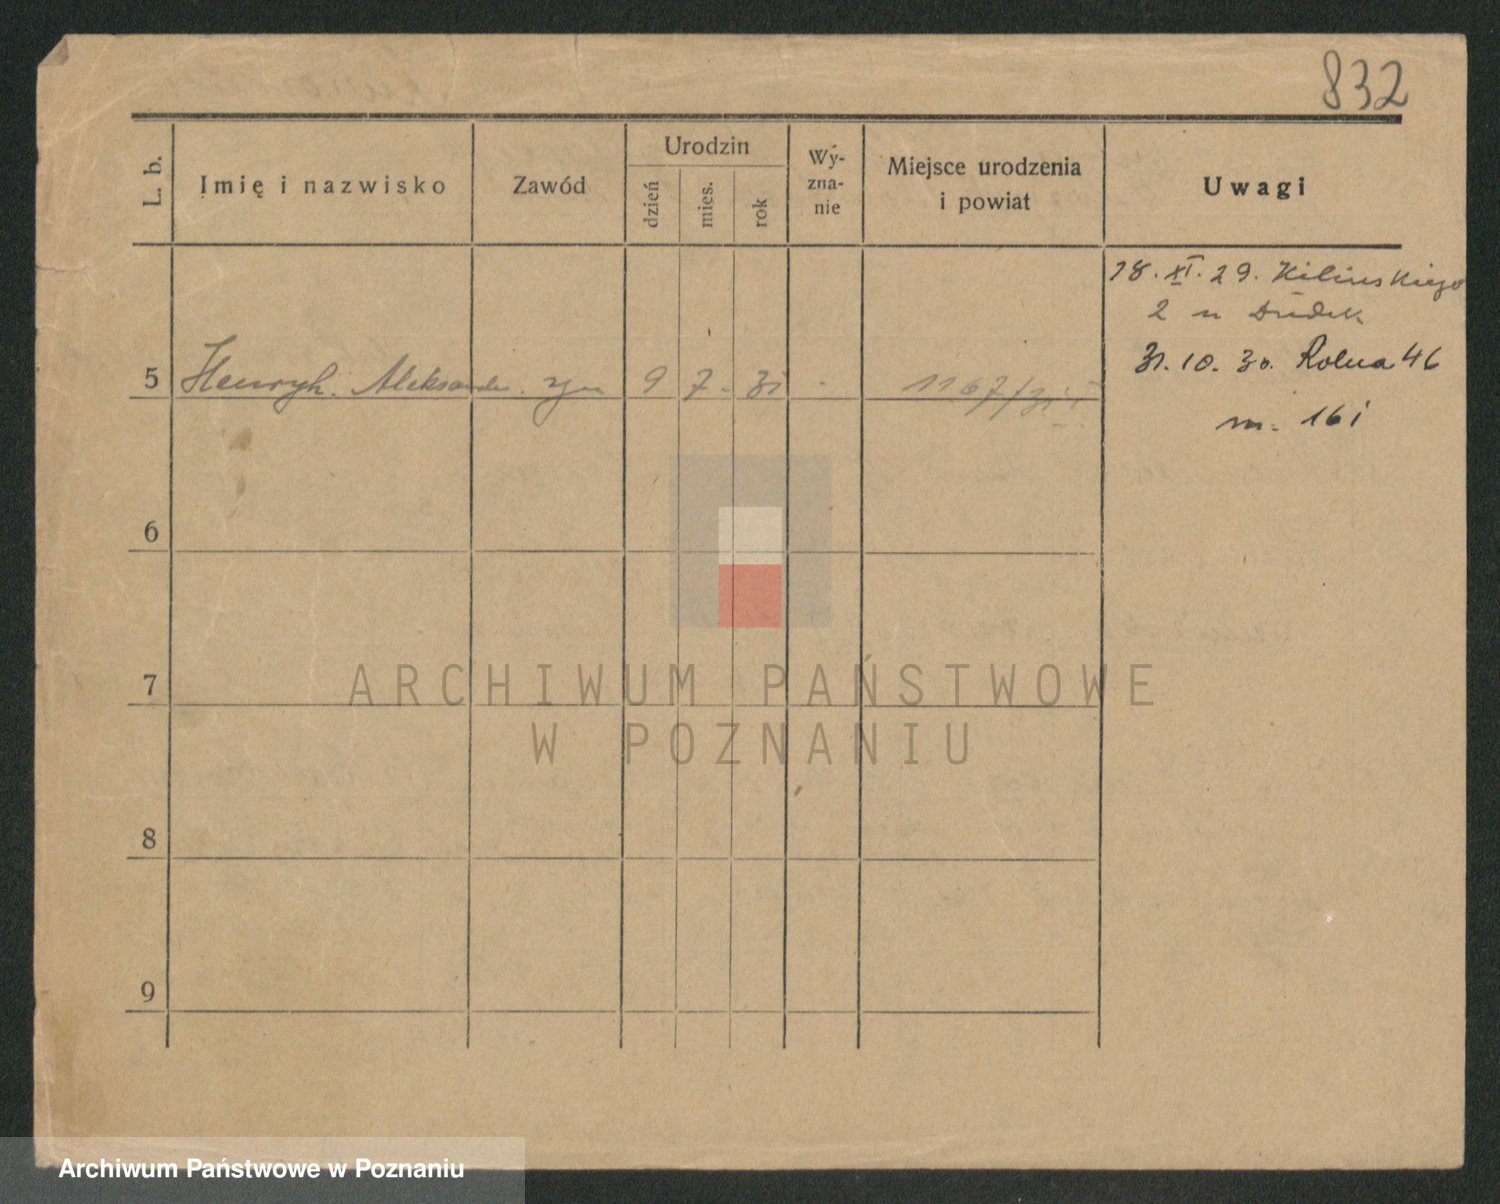 832
L. b.
Imię i nazwisko
Zawód
Urodzin
dzień
mies.
rok
Wy-
zna-
nie
Miejsce urodzenia
i powiat
Uwagi
18. XI. 29. Kilińskiego
2 u Dudek
31. 10. 30. Rolna 46
m. 16 i
5 Henryk Aleksander syn 9 7 31 1167/31
6
7
8
9
ARCHIWUM PAŃSTWOWE
W POZNANIU
Archiwum Państwowe w Poznaniu